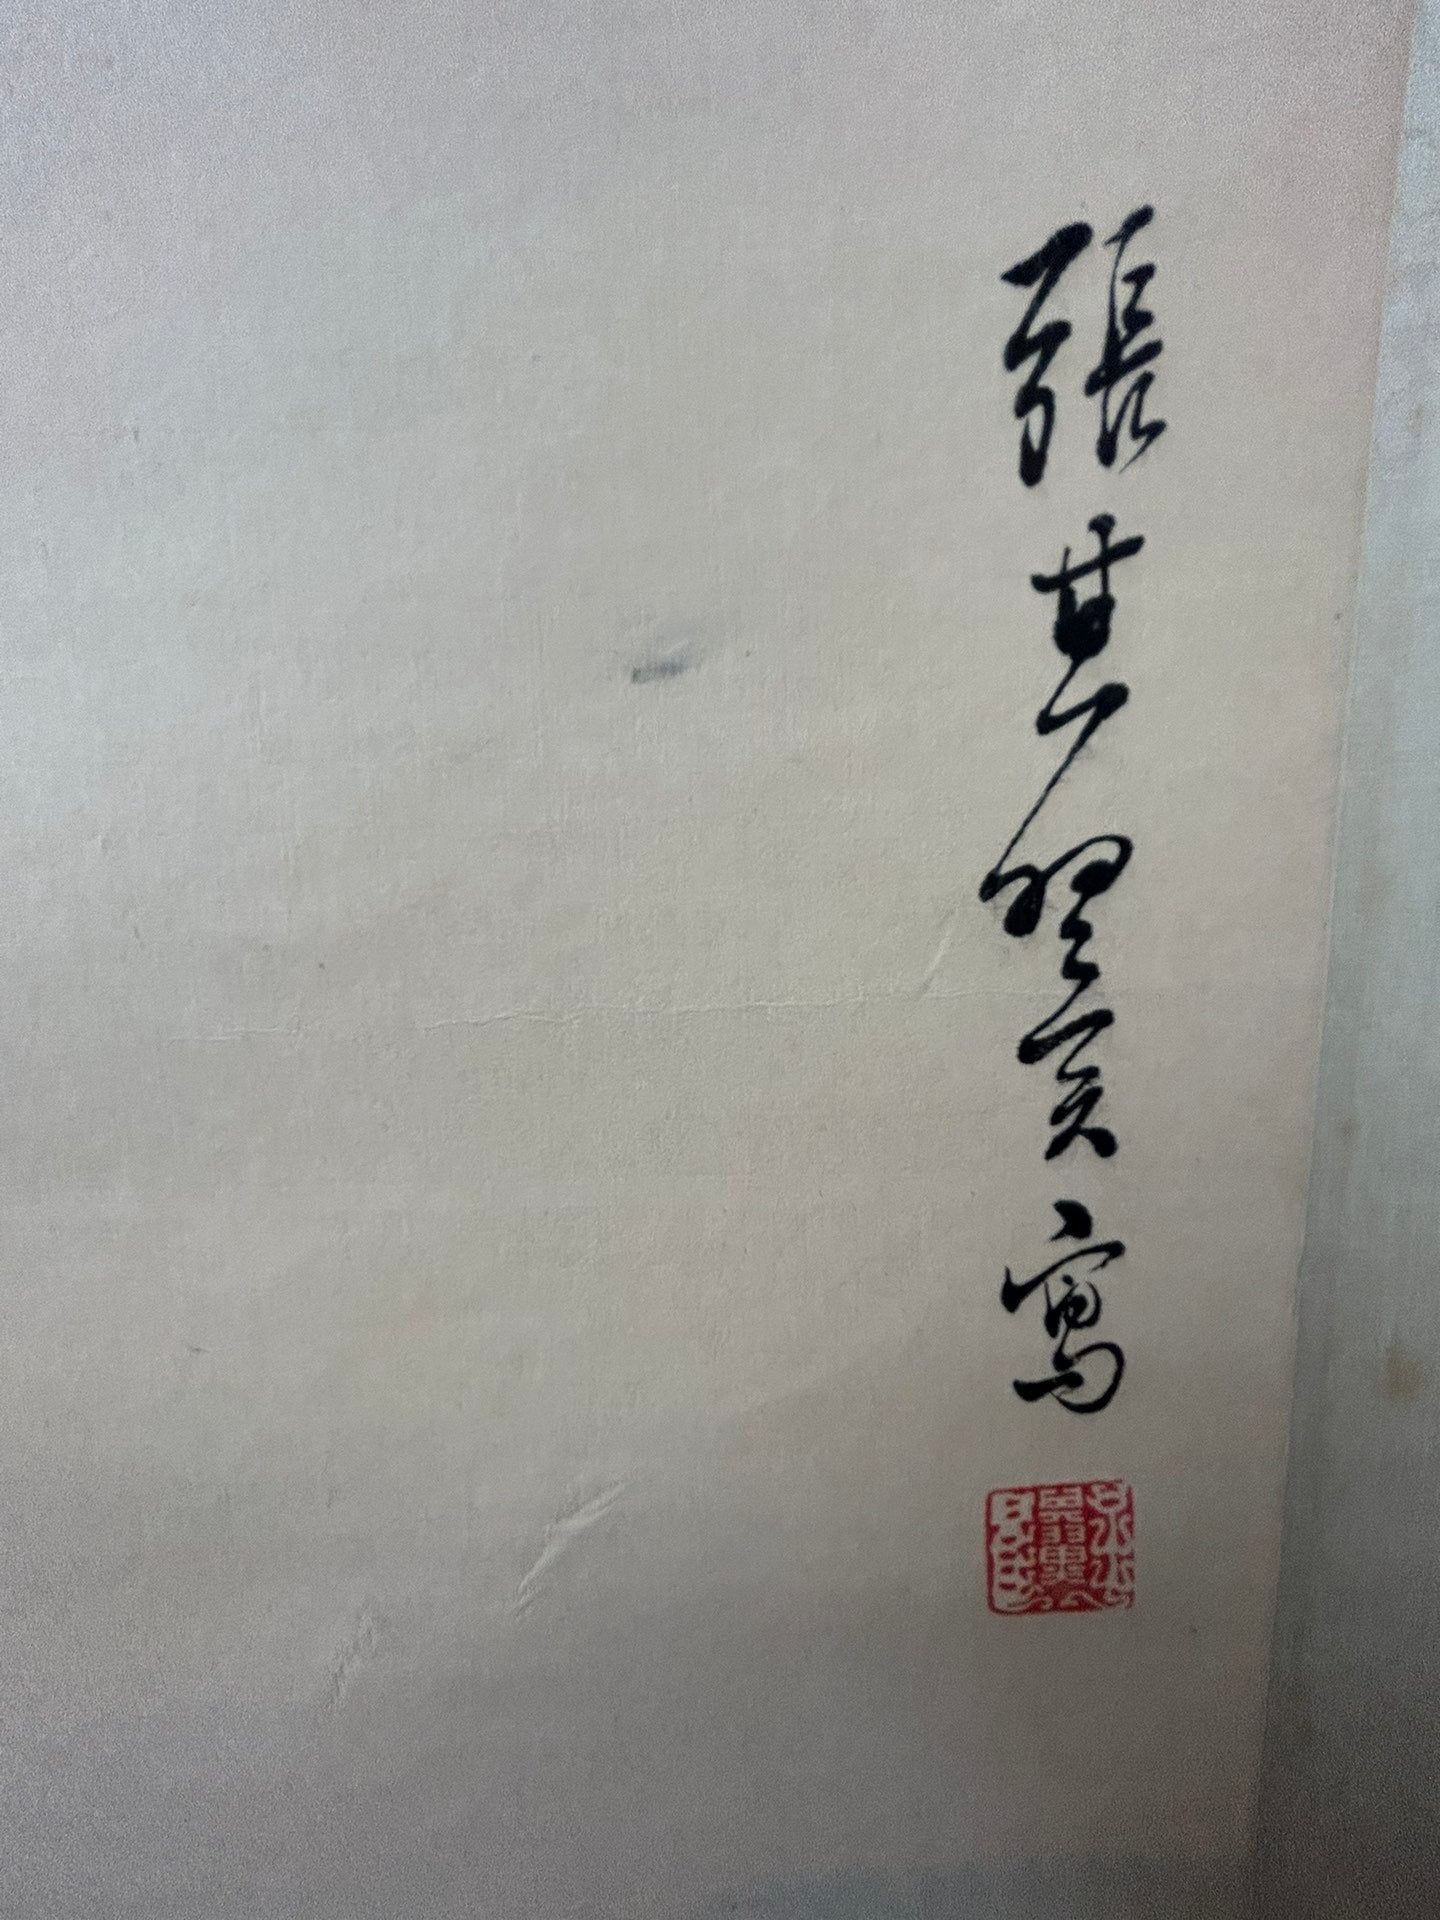 張其翼寫